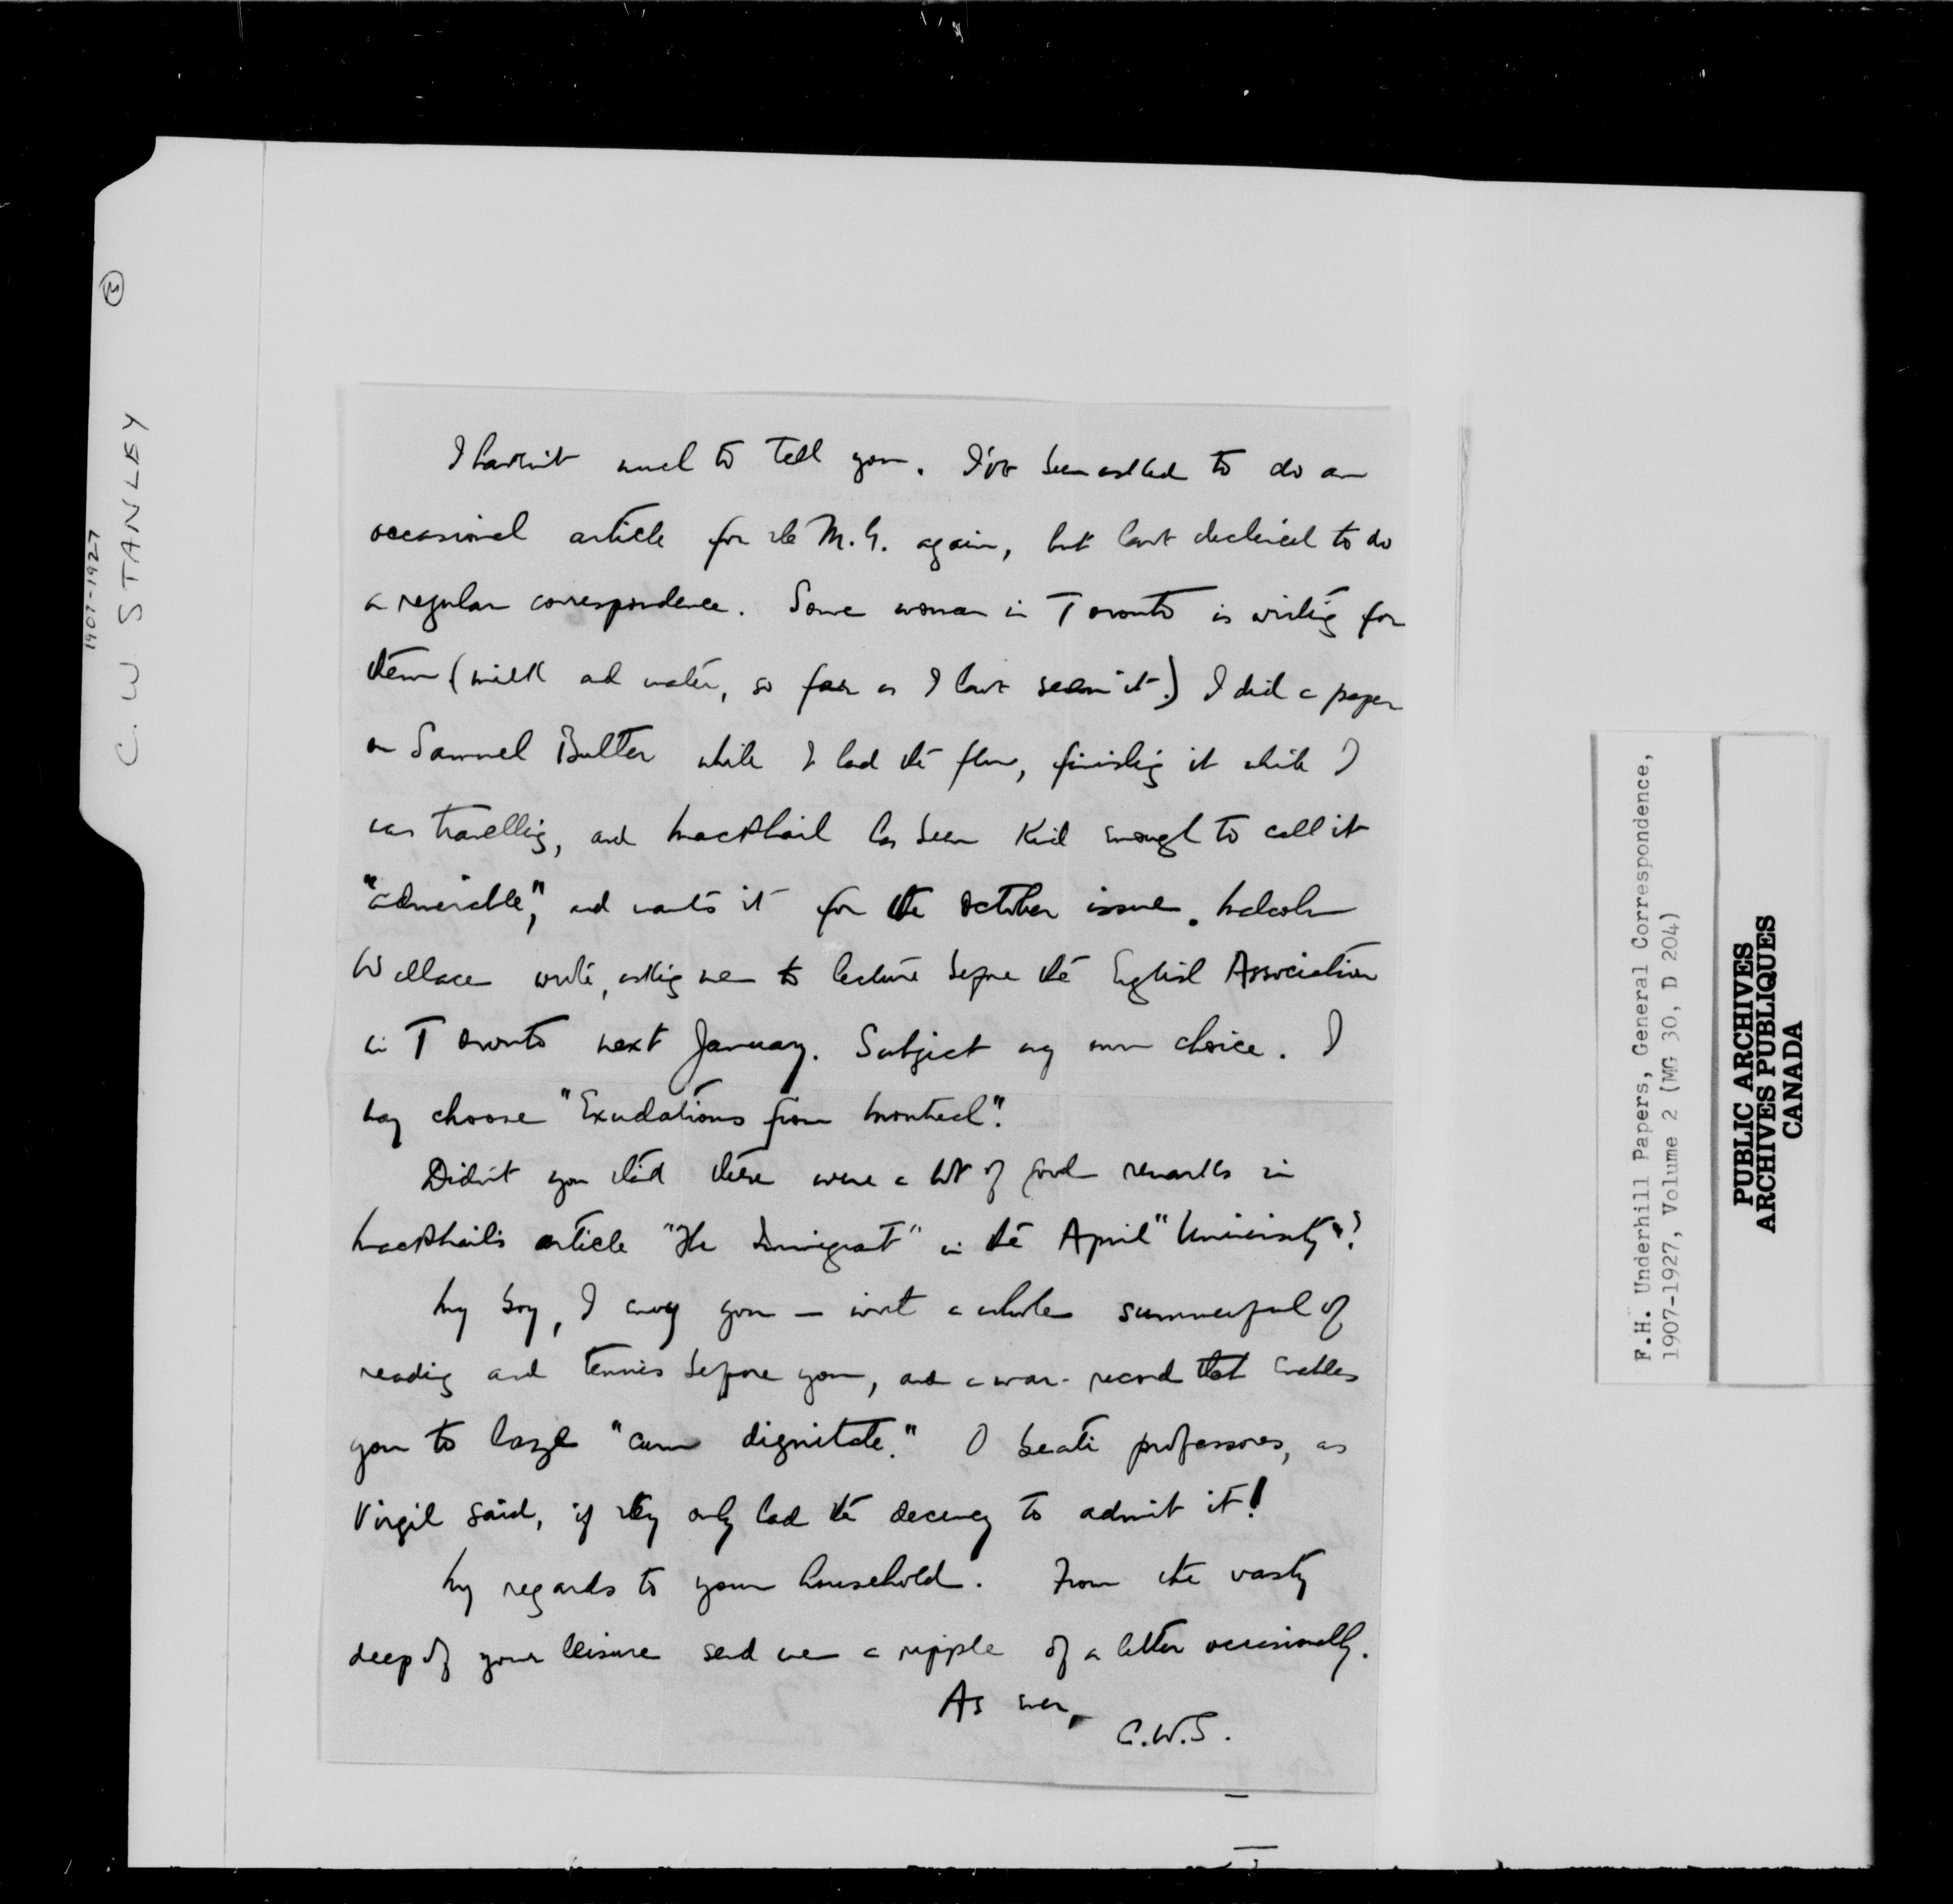 I haven't much to tell you. I've been asked to do an
occasional article for the M.G. again, but have declined to do
a regular correspondence. Some woman in Toronto is writing for
them (milk and water, so far as I have seen it.) I did a paper
on Samuel Butler while I had the flu, finishing it while I
was travelling, and MacPhail has been kind enough to call it
"admirable", and wants it for the October issue. Malcolm
Wallace wrote, asking me to lecture before the English Association
in Toronto next January. Subject my own choice. I
may choose "Exudations from Montreal".
Didn't you think there were a lot of good remarks in
MacPhail's article "The Immigrant" in the April "University"?
My boy, I envy you — with a whole summerful of
reading and tennis before you, and a war-record that enables
you to laze "cum dignitate." O beati professores, as
Virgil said, if they only had the decency to admit it!
My regards to your household. From the vasty
deep of your leisure send me a ripple of a letter occasionally.
As ever,
C.W.S.
C. W STANLEY
1907-1927
F.H. Underhill Papers, General Correspondence,
1907-1927, Volume 2 (MG 30, D 204)
PUBLIC ARCHIVES
ARCHIVES PUBLIQUES
CANADA